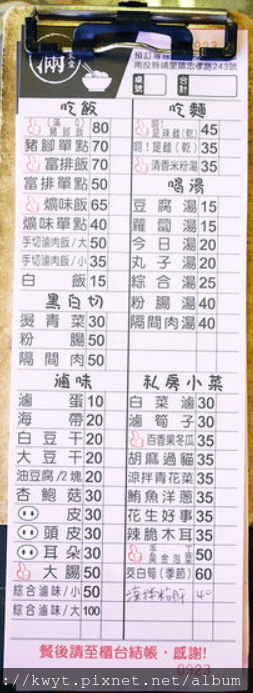 0923
滿
預訂專線
南投縣埔里鎮忠孝路243號
桌號
合計
吃飯
(滿)豬腳飯 80
豬腳單點 70
富排骨飯 70
富排單點 50
爌味飯 65
爌味單點 40
手切滷肉飯/大 50
手切滷肉飯/小 35
白飯 15
黑白切
燙青菜 30
粉腸 50
隔間肉 50
滷味
滷蛋 10
海帶 20
白豆干 20
大豆干 20
油豆腐/2塊 20
杏鮑菇 30
皮 30
頭皮 30
耳朵 30
大腸 50
綜合滷味/小 50
綜合滷味/大 100
吃麵
啊!是辣麵(乾) 45
啊!是麵(乾) 35
清香米粉湯 35
喝湯
豆腐湯 15
蘿蔔湯 15
今日湯 20
丸子湯 20
綜合湯 25
粉腸湯 40
隔間肉湯 40
私房小菜
白菜滷 30
滷筍子 30
百香果冬瓜 35
胡麻過貓 35
涼拌青花菜 35
鮪魚洋蔥 35
花生好事 35
辣脆木耳 35
手工黃金泡菜 50
茭白筍(季節) 60
涼拌粉肝 40
餐後請至櫃台結帳,感謝!
0923
/ http://kwyt.pixnet.net/album